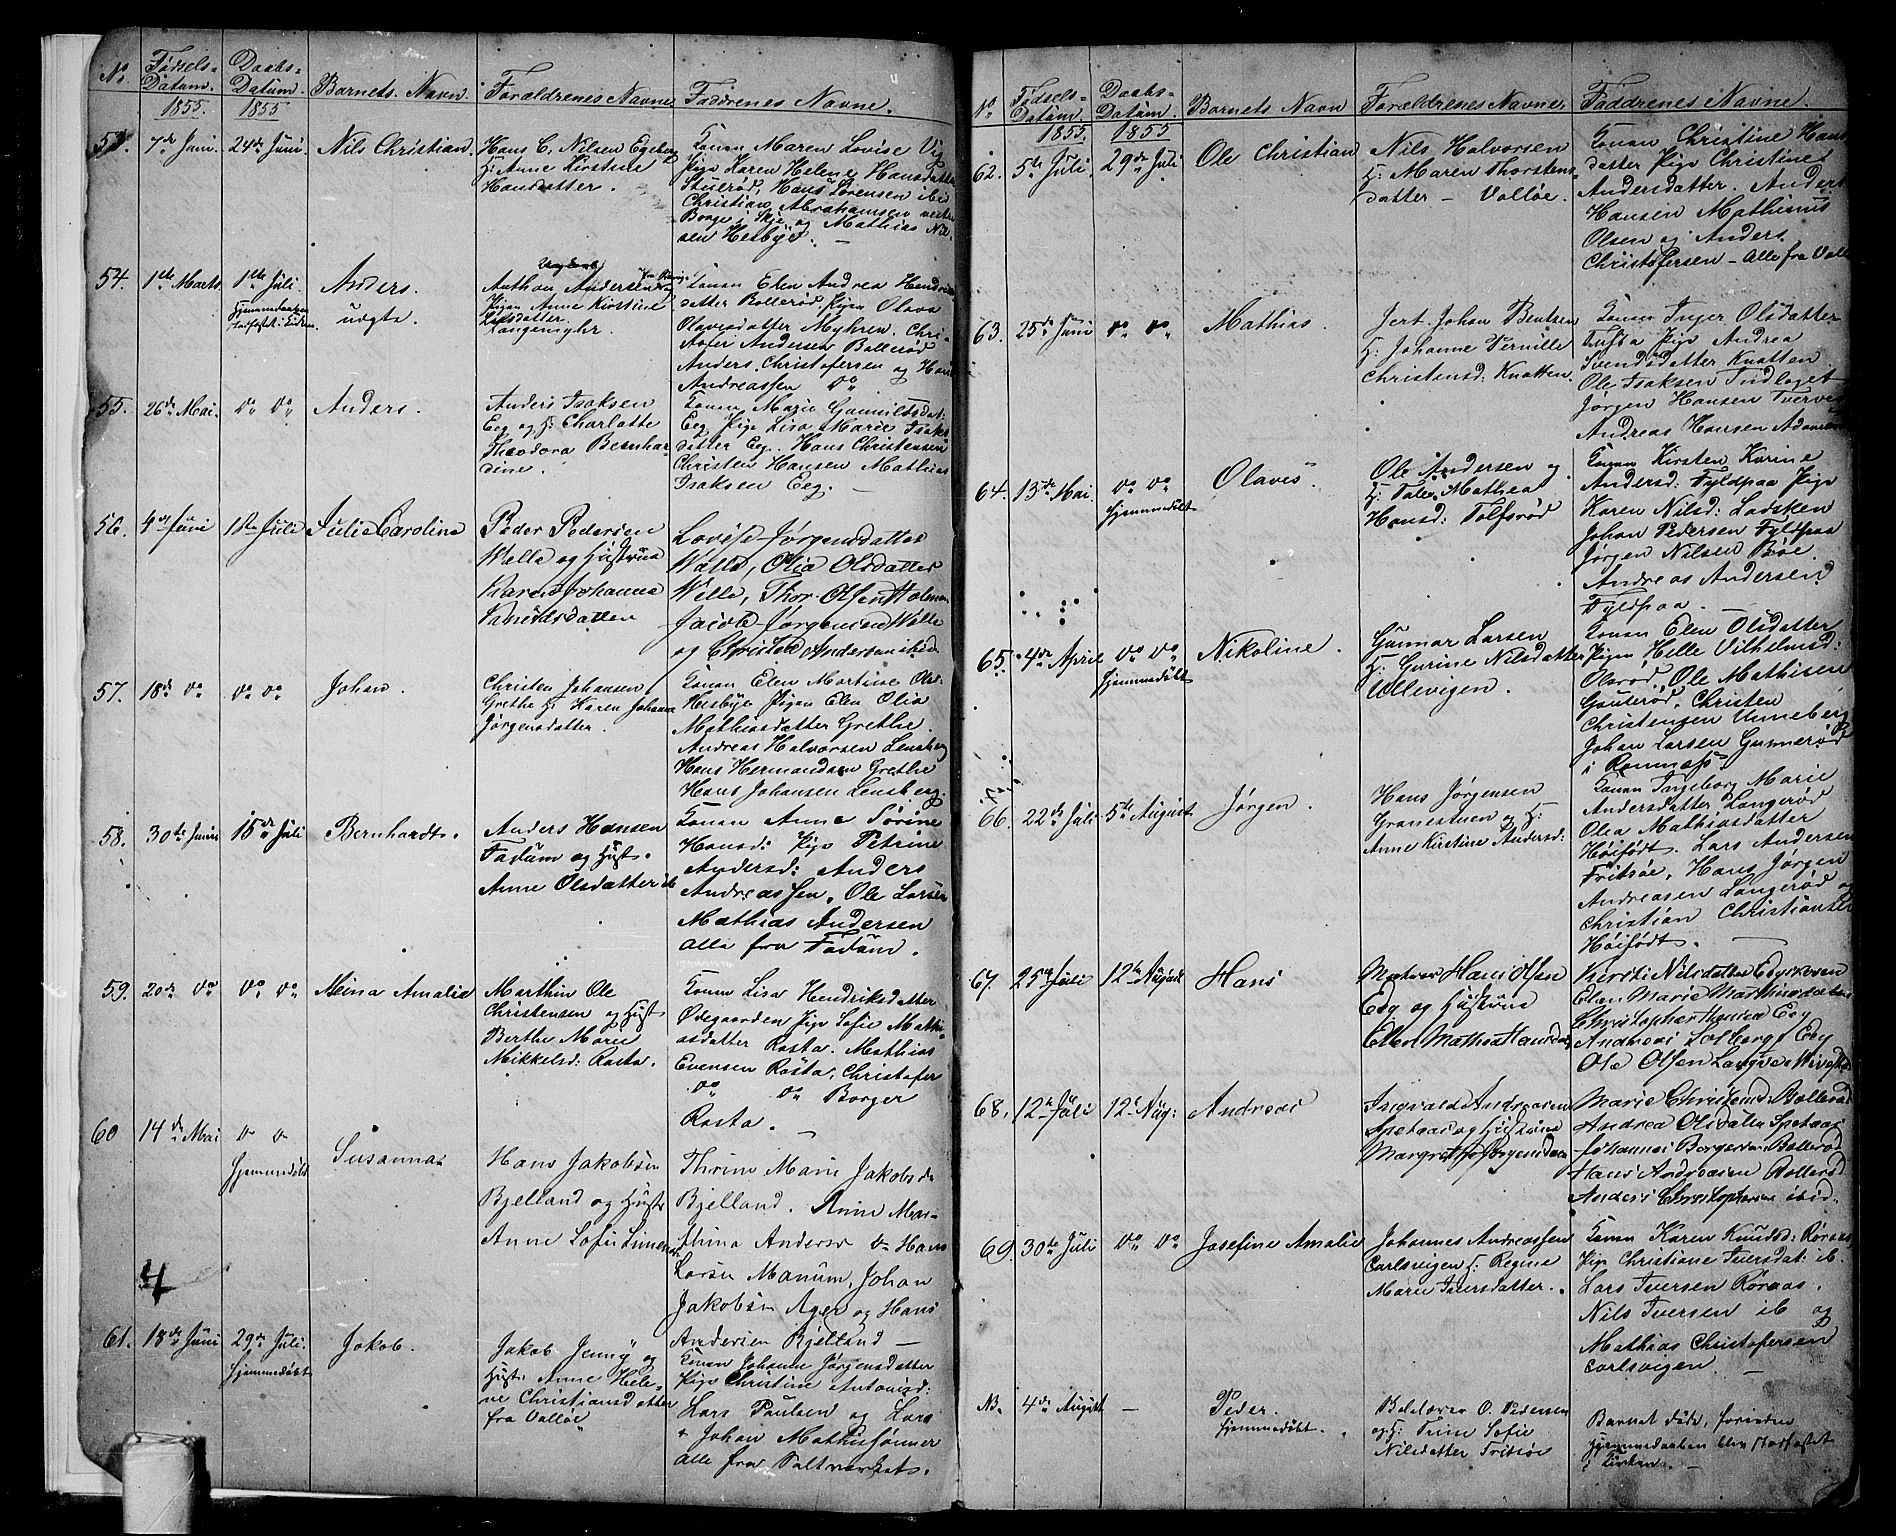 No. Fødsels- Datum. Daabs- Datum. Barnets Navn. Forældrenes Navne Faddrenes Navne.
1855. 1855
53. 7de Juni 24de Juni Nils Christian. Hans C. Nilsen Egeberg
H: Anne Kirstine
Hansdatter.
Konen Maren Lovise
Pige Karen Helene Hansdatter
Stuerød, Hans Sørensen ibid
Christian Abrahamsen
Borge i Skje og Mathias Nil-
sen Hesbye. —
54. 1ste Marts 1ste Juli Anders.
uægte.
Anthon Andersen
Pigen Anne Kirstine
Konen Elen Andrea
datter Bollerød, Pigen Olava
Olavesdatter Myhren. Chri-
Andersen Bollerød
Anders Christofersen og Hans
Andreassen do
55. 26de Mai. do do Anders.
Anders Isaksen
Eeg og H: Charlotte
Theodora Bernhar
dine.
Konen Marie
Eeg Pige Lisa Marie Isaks
datter Eeg. Hans Christensen
Christen Hansen Mathias
Isaksen Eeg. —
56. 4de Juni 1ste Juli Julie Caroline
Peder Pedersen
Wølle og Hustrue
Karen Johanna
Lovise Jørgensdatter
Wølle, Olia Olsdatter
Wølle, Thor Olsen Holmen
Jacob Jørgensen Wølle
og Christen Andersen ibid
57. 18de do do do Johan.
Christen Johansen
Grethe H: Karen Johanne
Jørgensdatter.
Konen Elen Martine Ols:
Hesbye Pigen Elen Olia
Mathiasdatter Grethe
Andreas Halvorsen Lensberg
Hans Hermandsen Grethe
Hans Johansen Lensberg.
58. 30te Juni 15de Juli Bernhardt.
Anders Hansen
Fadum og Hust.
Anne Olsdatter ib
Konen Anne Sørine
Hansd: Pige Petrine
Andersd: Anders
Andreassen, Ole Larsen
Mathias Andersen
alle fra Fadum.
59. 20de do do do Mina Amalie
Marthin Ole
Christensen og Hust
Berthe Marie
Mikkelsd: Rasta.
Konen Lisa Hendriksdatter
Ødegaarden Pige Sofie Mathi-
asdatter Rasta. Mathias
Evensen Rasta, Christofer
do do Borger
Rasta. —
60 14de Mai do do
Hjemmedøbt
Susanna
Hans Jakobsen
Bjelland og Hust:
Anne Sofie Simens
Thrine Marie Jakobsd
Bjelland. Anne Mar-
thina Andersd do Hans
Larsen Manum, Johan
Jakobsen Ager og Hans
Andersen Bjelland —
4
61. 18de Juni 29de Juli.
Hjemmedøbt
Jakob.
Jakob Jenny og
Hust: Anne Hele-
ne Christiansdatter
fra Valløe
Konen Johanne Jørgensdatter
Pige Christine Antonisd:
Lars Paulsen og Lars
& Johan Mathissønner
alle fra Saltverket.
No Fødsels- Datum. Daabs- Datum. Barnets Navn Forældrenes Navne Faddrenes Navne.
1855. 1855
62. 5te Juli 29de Juli Ole Christian
Nils Halvorsen
H: Maren Thorstens
datter — Valløe.
Konen Christine Hans
datter Pige Christine
Andersdatter. Anders
Hansen Mathinus
Olsen og Anders
Christofersen — Alle fra Valløe
63. 25de Juni do do Mathias.
Jert. Johan Bentsen
H: Johanne Pernille
Christensd: Knatten.
Konen Inger Olsdatter
Tufta Pige Andrea
Svendsdatter Knatten
Ole Isaksen Indlaget
Jørgen Hansen Tverved
Andreas Hansen
64. 13de Mai. do do
Hjemmedøbt
Olaves
Ole Andersen og
H: Talea Mathea
Hansd: Tolfsrød
Konen Kirsten Karine
Andersd: Fyldpaa Pige
Karen Nilsd: Ladsken
Johan Pedersen Fyldpaa
Jørgen Nilsen Bøe
Andreas Andersen
Fyldpaa. —
65. 4de April do do
Hjemmedøbt
Nikoline.
Gunnar Larsen
H: Gurine Nilsdatter
Ullevigen.
Konen Elen Olsdatter
Pigen Helle Vilhelmsd:
Olsrød, Ole Mathisen
Gauterød, Christen
Christensen Unneberg
Johan Larsen Gunnerød
i Ramnæs
66. 22de Juli 5te August Jørgen.
Hans Jørgensen
Granestuen og H:
Anne Kirstine Andersd:
Konen Ingeborg Marie
Andersdatter Langerød
Olea Mathiasdatter
Høifødt. Lars Andersen
Fritsøe, Hans Jørgen
Andreasen Langerød og
Christian Christiansen
Høifødt. —
67. 25de Juli 12te August Hans
Matros Hans Olsen
Eeg og Hustrue
Ellen Mathea
Kirsti Nilsdatter
Elen Marie Marthinsdatter
Christopher Hansen Eeg
Andreas Solberg Eeg
Ole Olsen
68. 12te Juli 12te Aug: Andreas
Ingvald Andreasen
Spetaas og Hustrue
Margrethe Jørgensdatter
Marie Christensd: Bollerød
Andrea Olsdatter Spetaas
Johannes Borgersen Bollerød
Hans Andreasen Bollerød
Anders Christophersen ibid.
69. 30te Juli do do Josefine Amalie
Johannes Andreassen
Carlsvigen H: Regine
Marie Iversdatter.
Konen Karen Knudsd: Røraas
Pige Christiane Iversdat: ib.
Lars Iversen Røraas.
Nils Iversen ib og
Mathias Christofersen
Carlsvigen. —
NB. 4de August — Peder.
Hjemmedøbt.
O. Pedersen
og H: Trine Sofie
Nilsdatter Fritsøe
Barnet døde, forinden
Hjemmedaaben blev stadfæstet
i Kirken. —